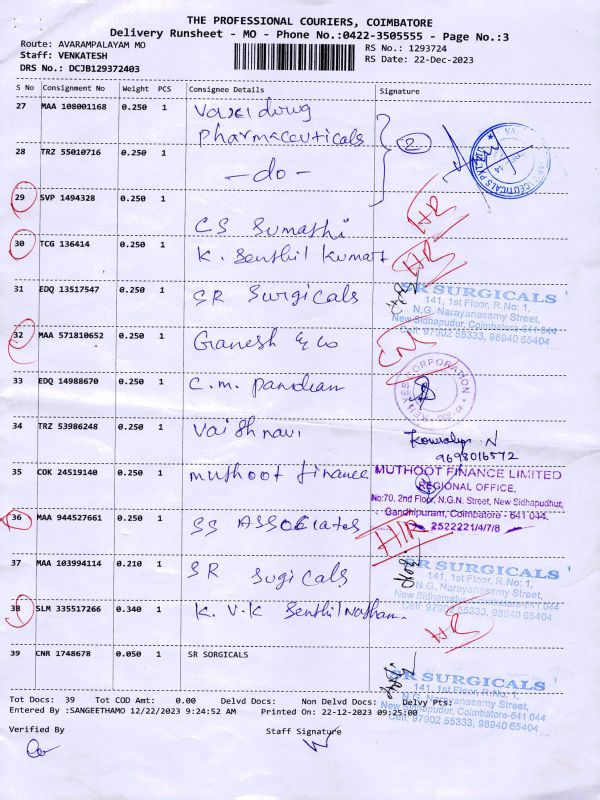 THE PROFESSIONAL COURIERS, COIMBATORE
Delivery Runsheet - MO - Phone No.:0422-3505555 - Page No.:3
Route: AVARAMPALAYAM MO
RS No.: 1293724
Staff: VENKATESH
RS Date: 22-Dec-2023
DRS No.: DCJB129372403
S No Consignment No Weight PCS Consignee Details Signature
27 MAA 108001168 0.250 1
pharmaceuticals 2
28 TRZ 55010716 0.250 1 -do-
29 SVP 1494328 0.250 1 CS Sumathi HR
30 TCG 136414 0.250 1 K. Senthil Kumar HR
31 EDQ 13517547 0.250 1 SR Surgicals
SR SURGICALS
141, 1st Floor, R.No: 1,
N.G. Narayanasamy Street,
New Sidhapudur, Coimbatore-641 044
Cell: 97902 55333, 98940 65404
32 MAA 571810652 0.250 1 Ganesh & co
33 EDQ 14988670 0.250 1 C.M. Pandian
CORPORATION
34 TRZ 53986248 0.250 1 Vaishnavi
Kowsalya N
9698016572
35 COK 24519140 0.250 1 Muthoot finance
MUTHOOT FINANCE LIMITED
REGIONAL OFFICE,
No:70, 2nd Floor, N.G.N. Street, New Sidhapudhur,
Gandhipuram, Coimbatore - 641 044.
2522221/4/7/8
36 MAA 944527661 0.250 1 SS ASSOCiates HR
37 MAA 103994114 0.210 1 SR Sugicals
SR SURGICALS
141, 1st Floor, R.No: 1,
N.G. Narayanasamy Street,
New Sidhapudur, Coimbatore-641 044
Cell: 97902 55333, 98940 65404
38 SLM 335517266 0.340 1 K. V.K Senthil Nathan. HR
39 CNR 1748678 0.050 1 SR SORGICALS
SR SURGICALS
141, 1st Floor, R.No: 1,
N.G. Narayanasamy Street,
New Sidhapudur, Coimbatore-641 044
Cell: 97902 55333, 98940 65404
Tot Docs: 39 Tot COD Amt: 0.00 Delvd Docs: Non Delvd Docs: Delvy Pts:
Entered By :SANGEETHAMO 12/22/2023 9:24:52 AM Printed On: 22-12-2023 09:25:00
Verified By Staff Signature